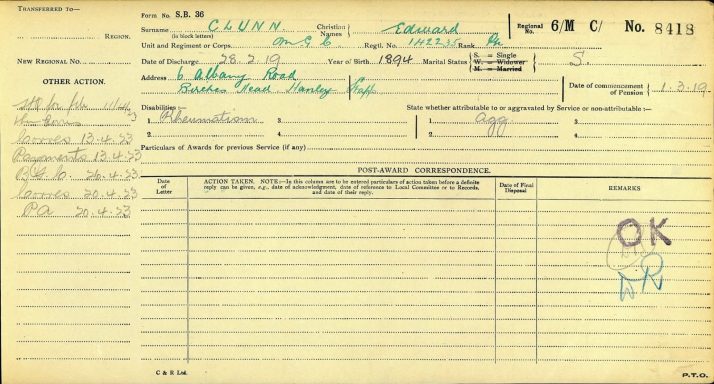 TRANSFERRED TO—
REGION.
NEW REGIONAL NO.
OTHER ACTION.
13.4.23
Payments 13.4.23
26.4.23
20.4.23
PA 20.4.23
Form No. S.B. 36
Surname CLUNN Christian Names Edward Regional No. 6/M C/ No. 8418
(in block letters)
Unit and Regiment or Corps. M G C Regtl. No. 142235 Rank Pte
Date of Discharge 28.2.19 Year of Birth 1894 Marital Status S. = Single W. = Widower M. = Married S.
Address 6 Albany Road
Birches Head. Hanley Staffs
Date of commencement of Pension 1.3.19.
Disabilities :— State whether attributable to or aggravated by Service or non-attributable :—
1. Rheumatism 3. 1. agg 3.
2. 4. 2. 4.
Particulars of Awards for previous Service (if any)
POST-AWARD CORRESPONDENCE.
Date of Letter
ACTION TAKEN. NOTE:—In this column are to be entered particulars of action taken before a definite reply can be given, e.g., date of acknowledgment, date of reference to Local Committee or to Records, and date of their reply.
Date of Final Disposal
REMARKS
OK
C & R Ltd.
P.T.O.